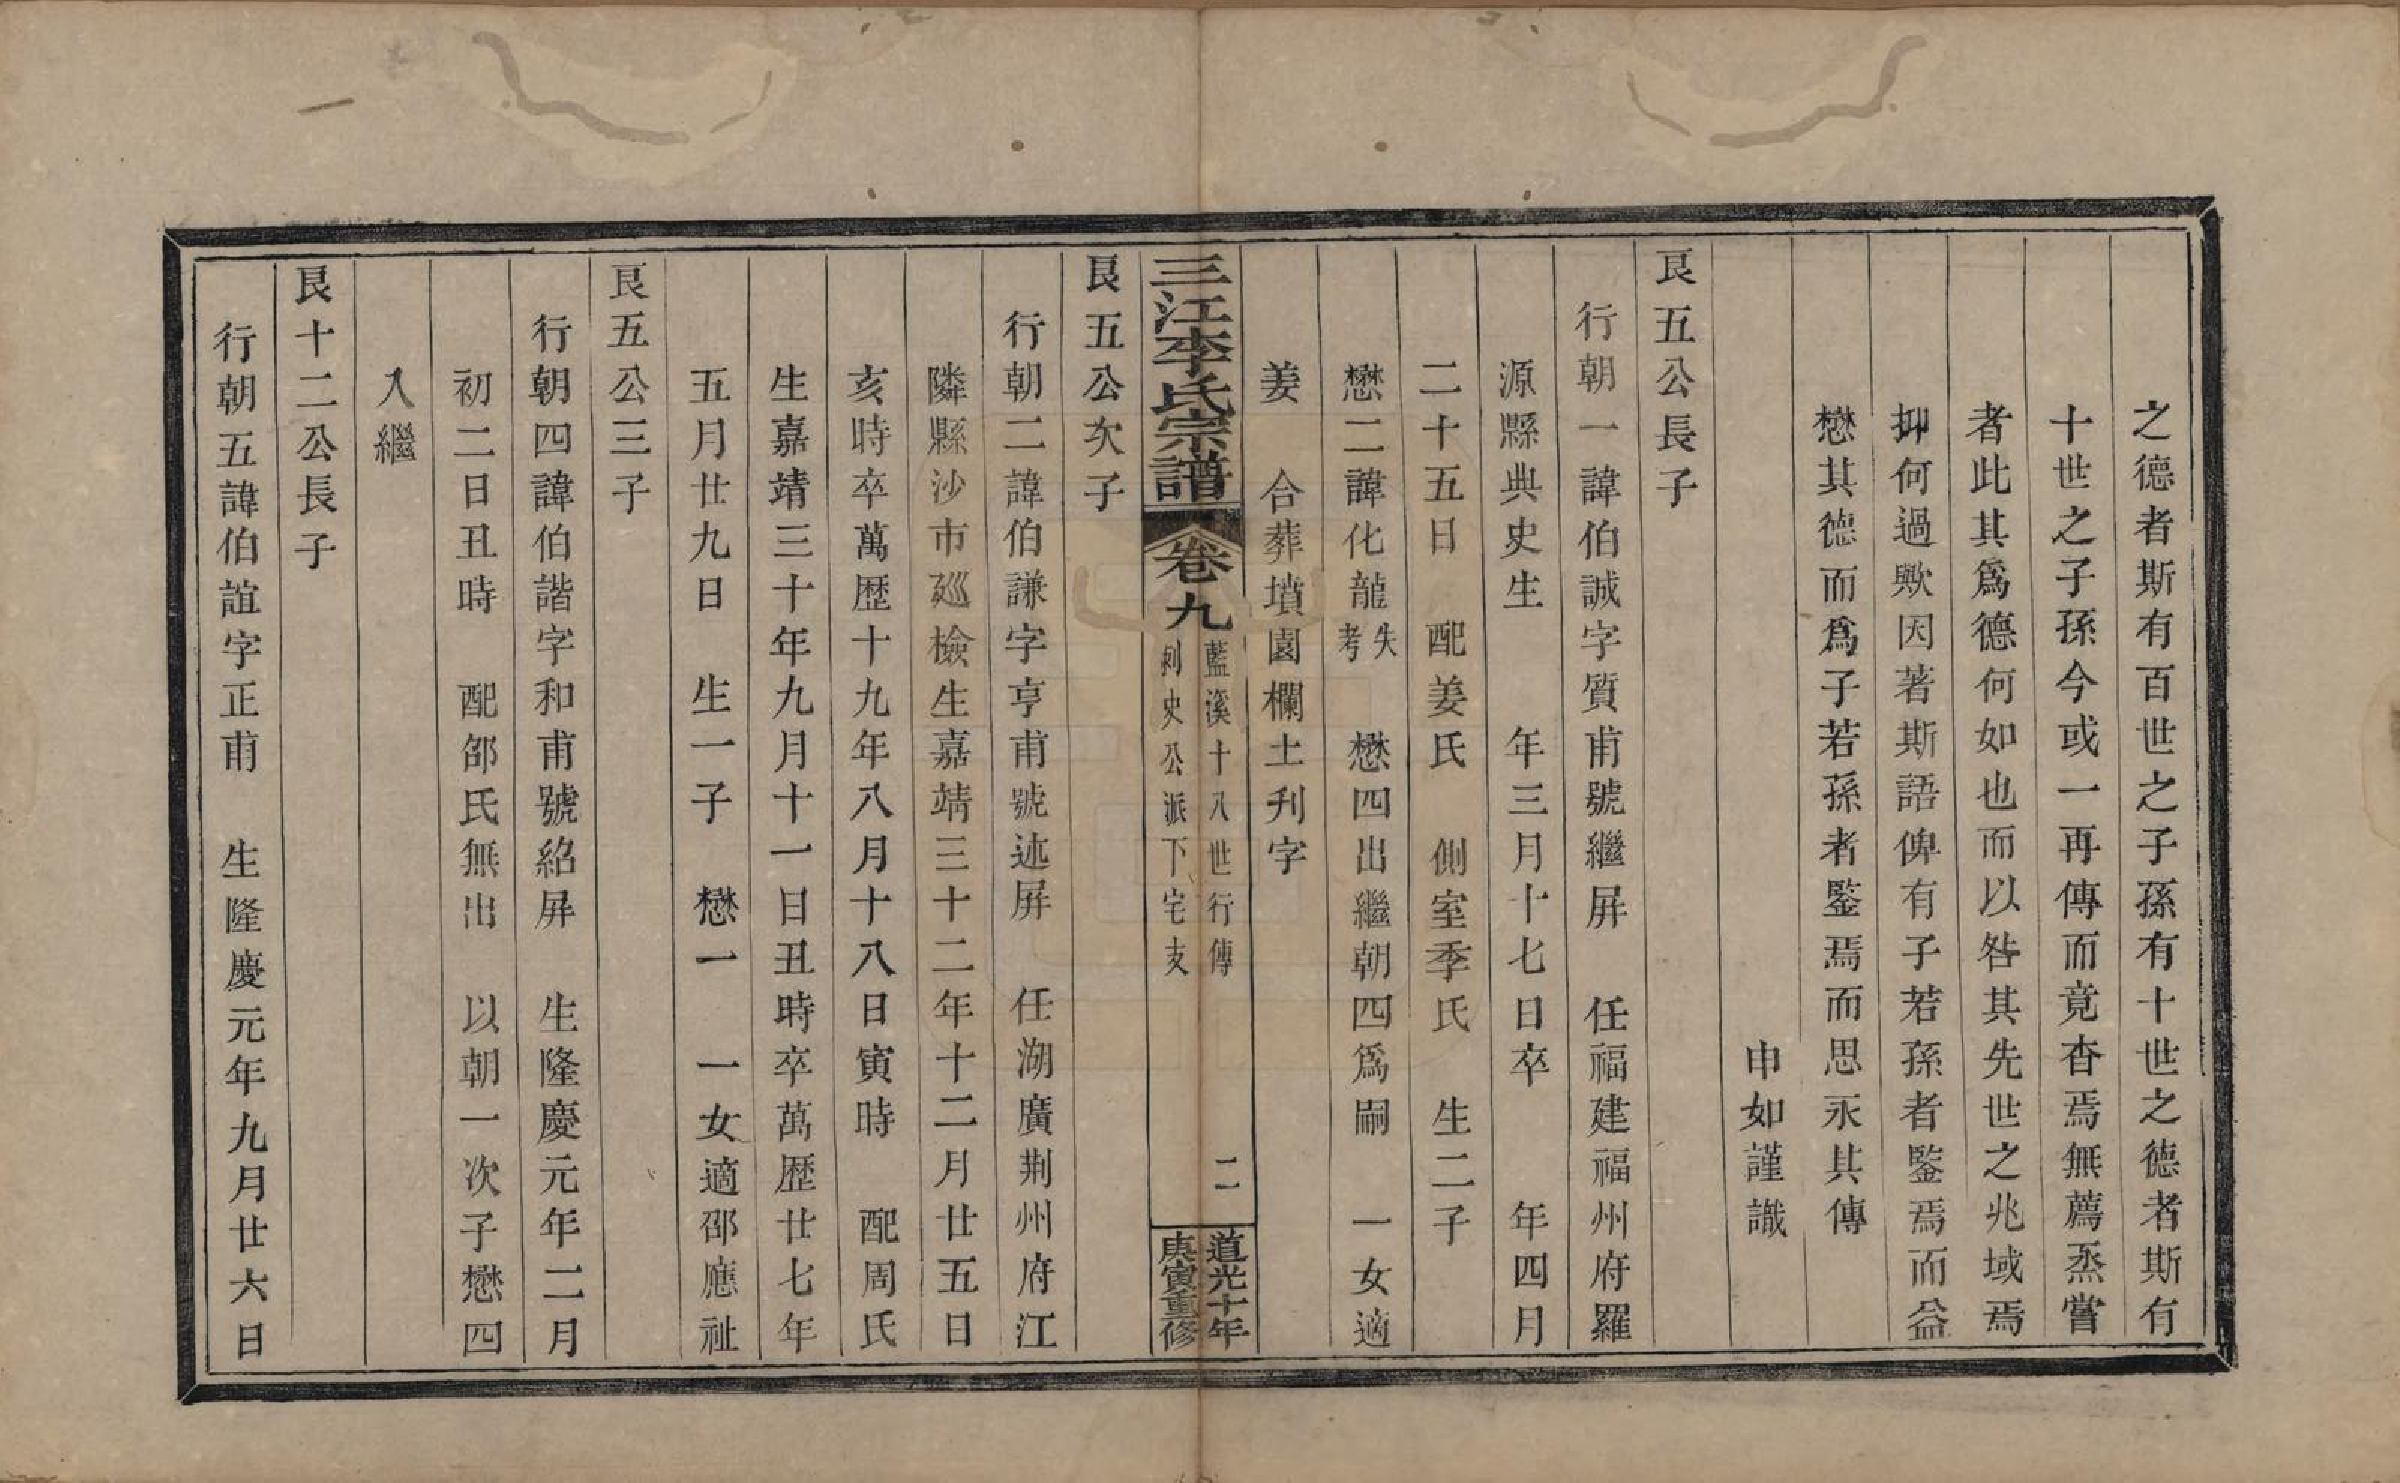 之德者斯有百世之子孫有十世之德者斯有
十世之子孫今或一再傳而竟杳焉無薦烝嘗
者此其爲德何如也而以咎其先世之兆域焉
抑何過歟因著斯語俾有子若孫者鑒焉而益
懋其德而爲子若孫者鑒焉而思永其傳
申如謹識
艮五公長子
行朝一諱伯誠字質甫號繼屏　任福建福州府羅
源縣典史生　　年三月十七日卒　　年四月
二十五日　配姜氏　側室季氏　生二子
懋二諱化龍失考　懋四出繼朝四爲嗣　一女適
姜　合葬墳園欄土刋字
三江李氏宗譜　卷九　藍溪十八世行傳　刺史公派下宅支　二　道光十年庚寅重修
艮五公次子
行朝二諱伯謙字亨甫號述屏　任湖廣荆州府江
隣縣沙市廵檢生嘉靖三十二年十二月廿五日
亥時卒萬歷十九年八月十八日寅時　配周氏
生嘉靖三十年九月十一日丑時卒萬歷廿七年
五月廿九日　生一子　懋一　一女適邵應祉
艮五公三子
行朝四諱伯諧字和甫號紹屏　生隆慶元年二月
初二日丑時　配郤氏無出　以朝一次子懋四
入繼
艮十二公長子
行朝五諱伯誼字正甫　生隆慶元年九月廿六日